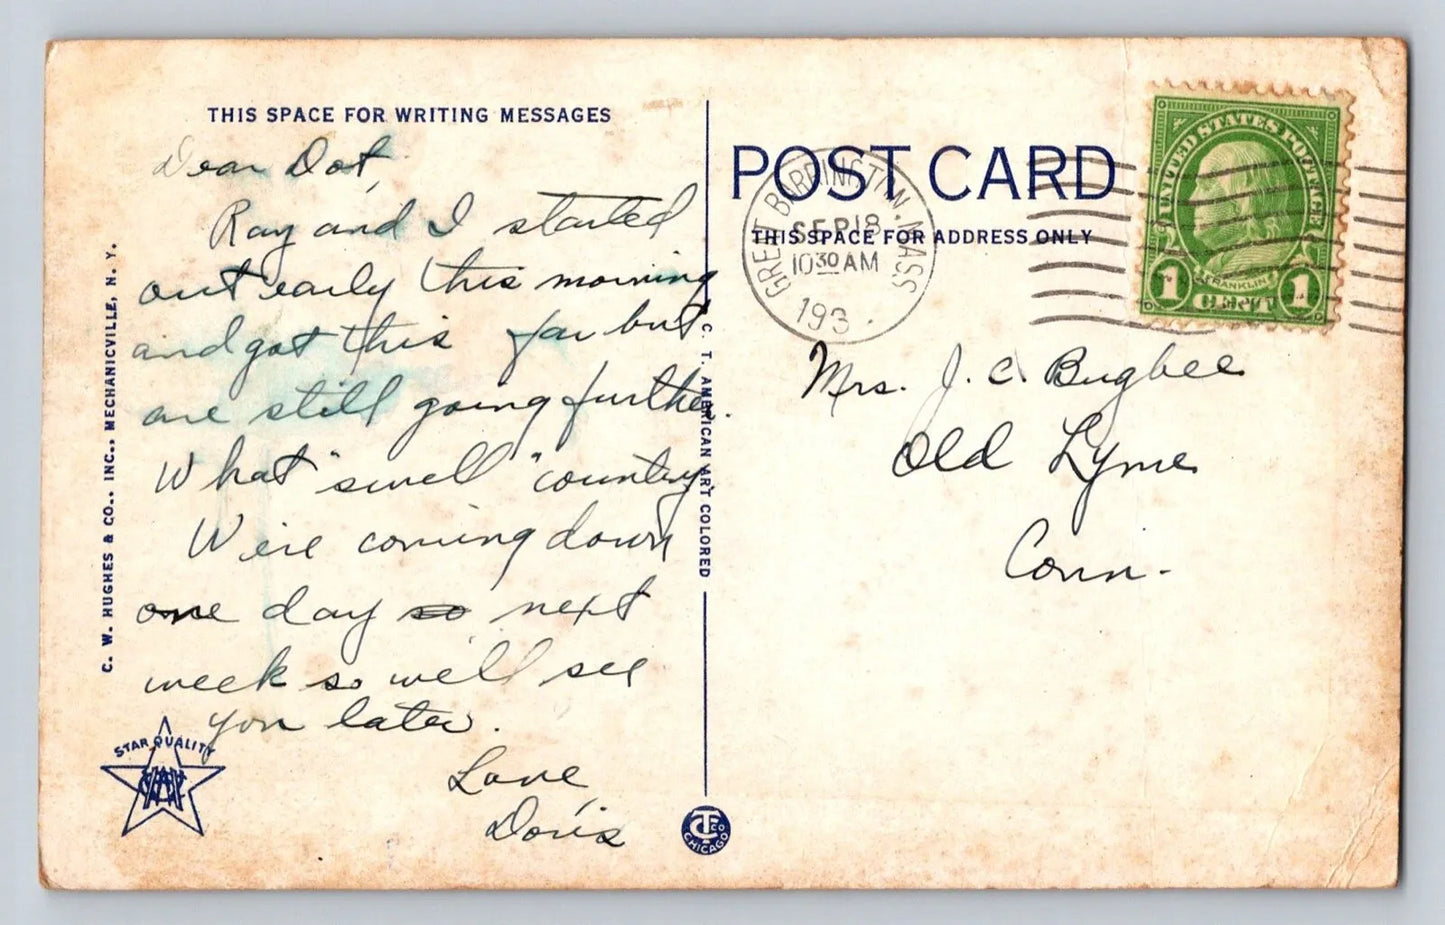 THIS SPACE FOR WRITING MESSAGES
Dear Dot,
Ray and I started
out early this morning
and got this far but
are still going further.
What "swell" country.
We're coming down
one day so next
week so we'll see
you later.
Love,
Doris
C. W. HUGHES & CO., INC., MECHANICVILLE, N. Y.
STAR QUALITY
C. T. AMERICAN ART COLORED
CT CO
CHICAGO
POST CARD
THIS SPACE FOR ADDRESS ONLY
GREAT BARRINGTON. MASS
SEP 18
10 30 AM
193
UNITED STATES POSTAGE
FRANKLIN
1 CENT 1
Mrs. J. C. Bugbee
Old Lyme
Conn.